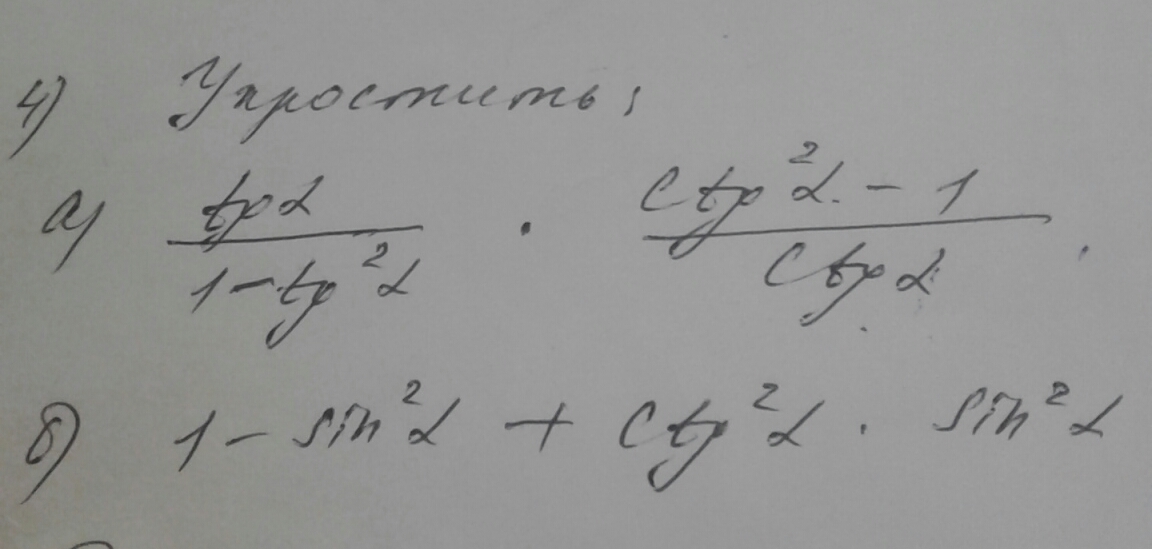 4) Упростить:
а) tgα / (1 - tg²α) · (ctg²α - 1) / ctgα
б) 1 - sin²α + ctg²α · sin²α